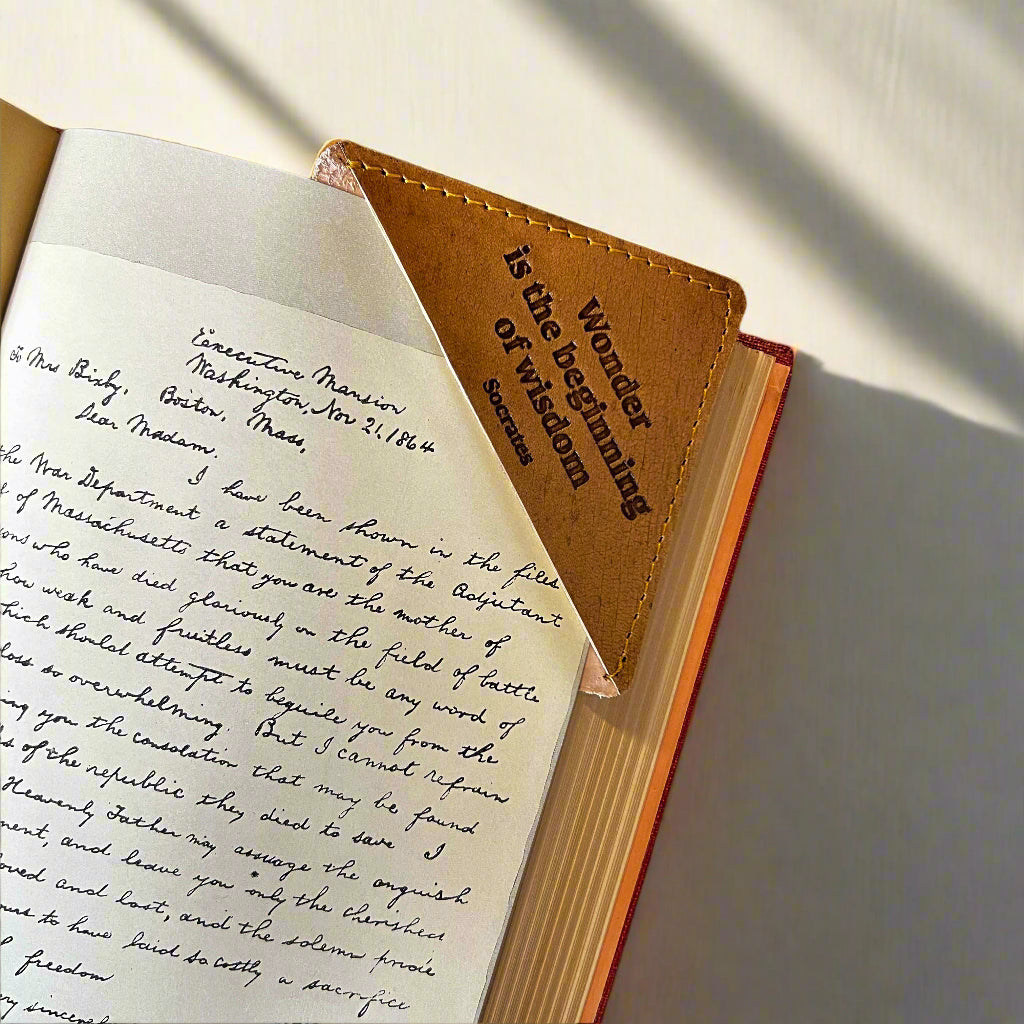 Executive Mansion
Washington, Nov 21, 1864
To Mrs Bixby, Boston, Mass,
Dear Madam.
I have been shown in the files
the War Department a statement of the Adjutant
of Massachusetts that you are the mother of
sons who have died gloriously on the field of battle
how weak and fruitless must be any word of
which should attempt to beguile you from the
loss so overwhelming. But I cannot refrain
ing you the consolation that may be found
of the republic they died to save I
Heavenly Father may assuage the anguish
ment, and leave you only the cherished
loved and lost, and the solemn pride
to have laid so costly a sacrifice
freedom
Wonder
is the beginning
of wisdom
Socrates